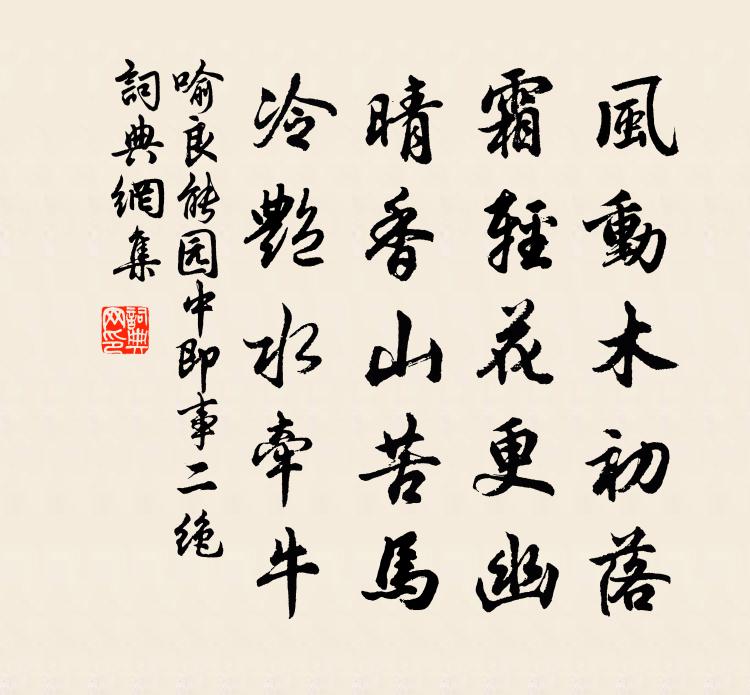 風動木初落
霜輕花更幽
晴香山苦馬
冷艷水牽牛
喻良能园中即事二絕
詞典網集
詞典网印